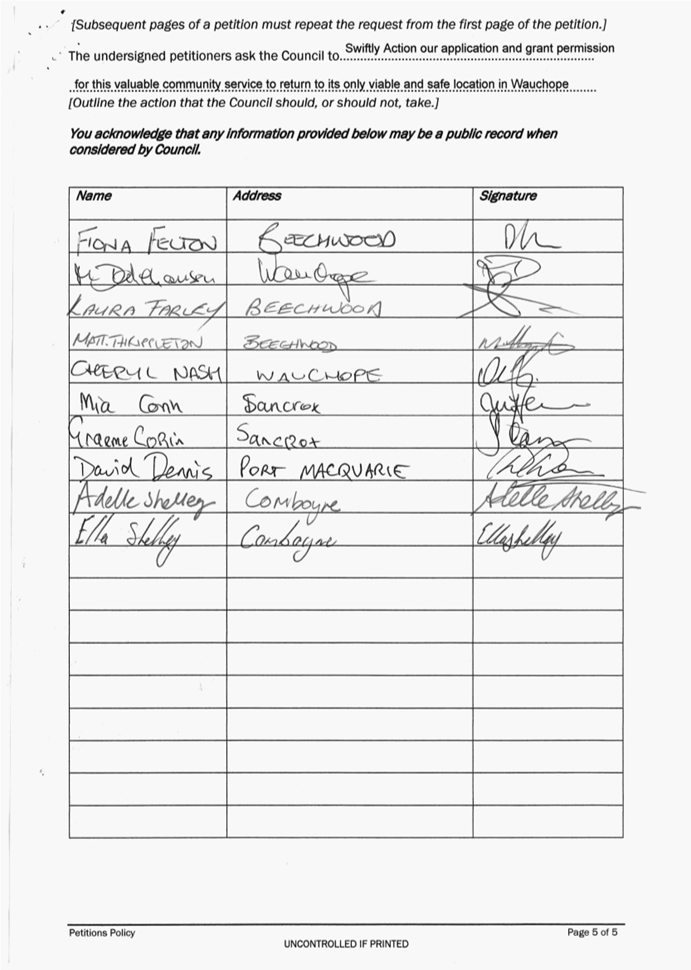 [Subsequent pages of a petition must repeat the request from the first page of the petition.]
The undersigned petitioners ask the Council to Swiftly Action our application and grant permission
for this valuable community service to return to its only viable and safe location in Wauchope
[Outline the action that the Council should, or should not, take.]
You acknowledge that any information provided below may be a public record when
considered by Council.
Name Address Signature
FIONA FELTON BEECHWOOD
Wauchope
LAURA FARLEY BEECHWOOD
MATT. BEECHWOOD
CHERYL NASH WAUCHOPE
Mia Conn Sancrox
Graeme CORIN SANCROX
David Dennis PORT MACQUARIE
Adelle Shelley Comboyne Adelle Shelley
Ella Shelley Comboyne Ella Shelley
Petitions Policy Page 5 of 5
UNCONTROLLED IF PRINTED